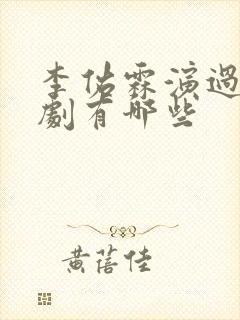 李佑霖演過
劇有哪些
黃蓓佳